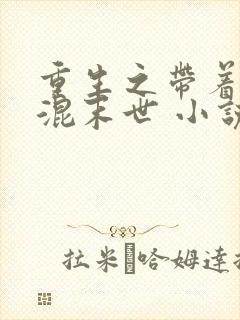 重生之帶着
混末世 小說
拉米 哈姆達